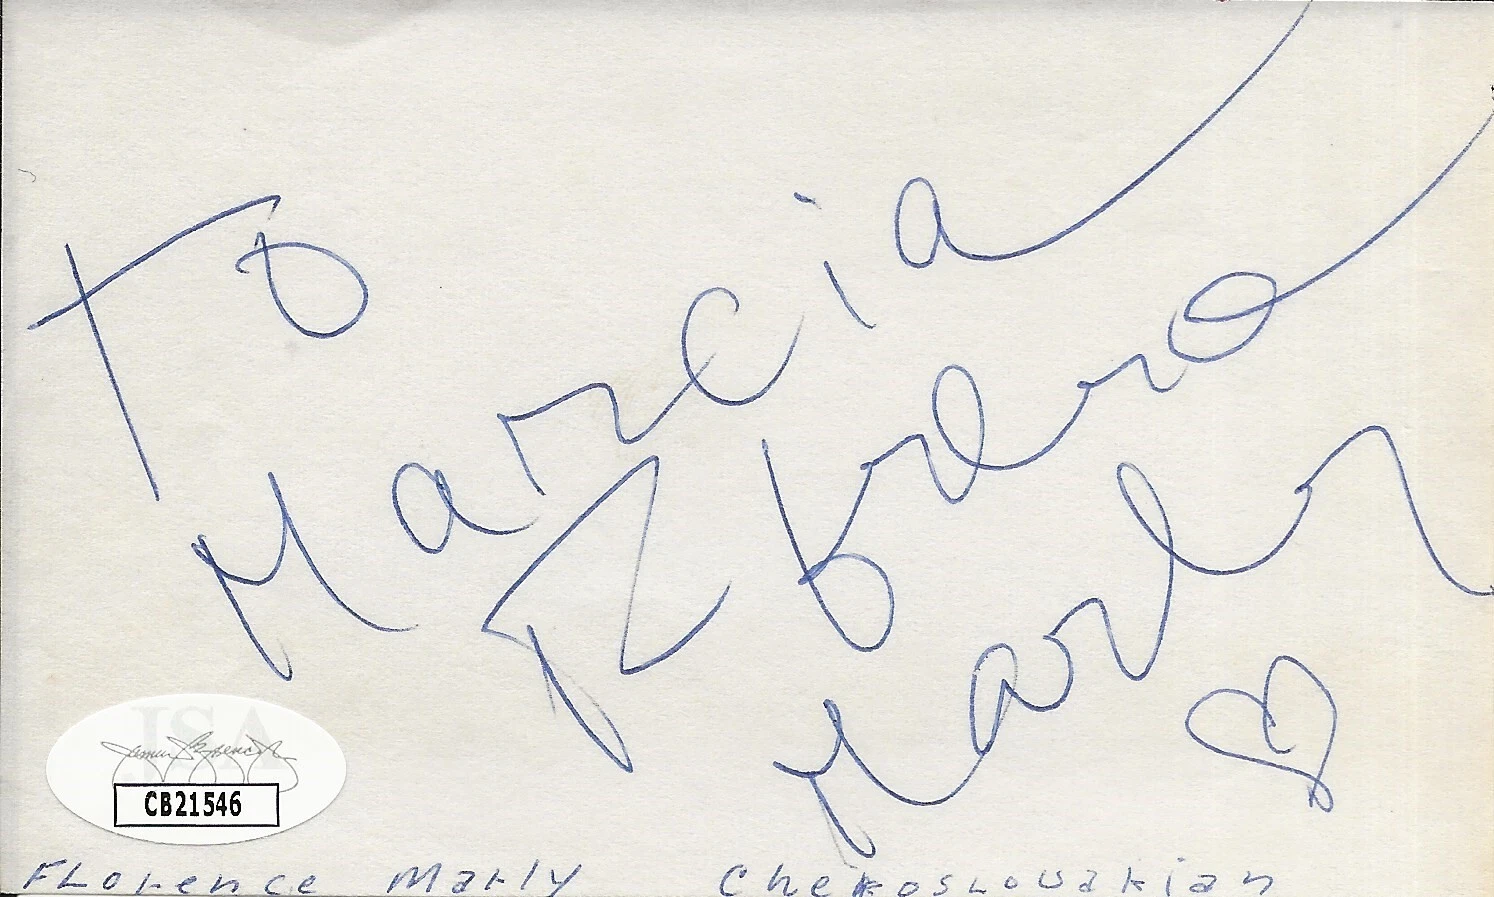 To
Marcia
Marly
JSA
CB21546
FLorence Marly ChekosLowakian